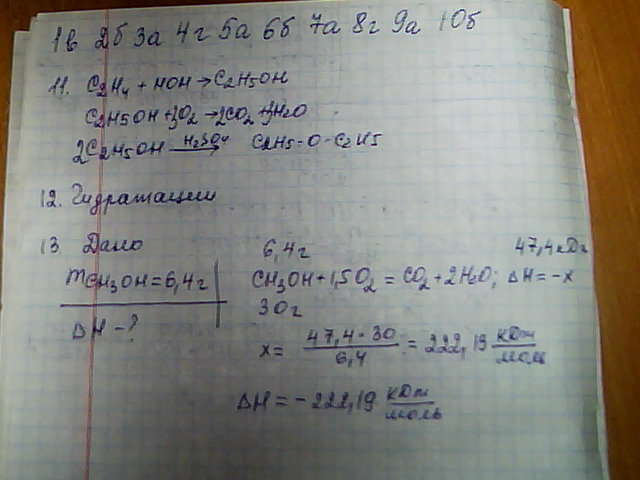 1в 2б 3а 4г 5а 6б 7а 8г 9а 10б
11. C2H4 + HOH → C2H5OH
C2H5OH + 3O2 → 2CO2 + 3H2O
2C2H5OH H2SO4 → C2H5-O-C2H5
12. Гидратации
13 Дано
mCH3OH = 6,4г
ΔH - ?
6,4г 47,4кДж
CH3OH + 1,5O2 = CO2 + 2H2O; ΔH = -x
30г
x = 47,4 · 30 / 6,4 = 222,19 кДж/моль
ΔH = -222,19 кДж/моль